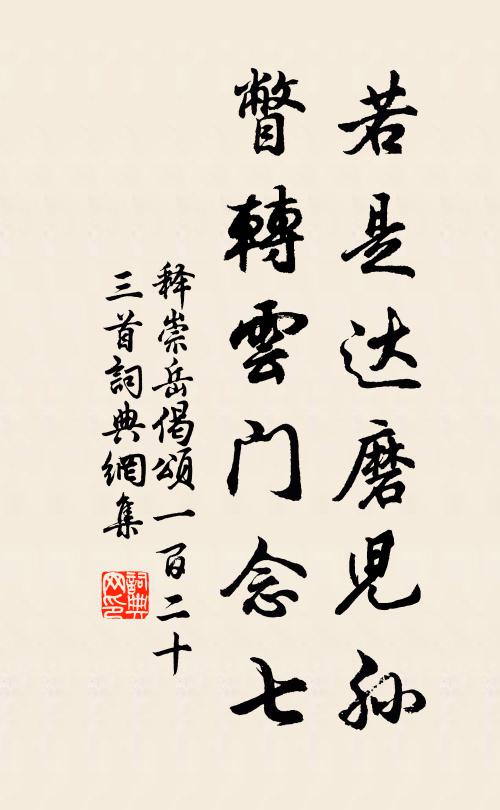 若是达磨児孫
瞥轉雲门念七
释崇岳偈頌一百二十
三首詞典網集
詞典
网印